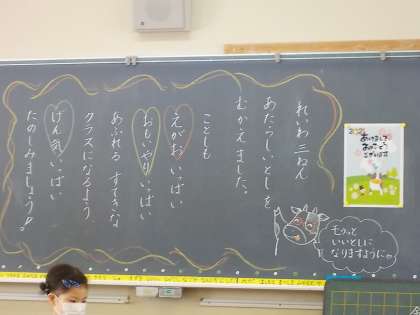 れいわ三ねん
あたらしいとしを
むかえました。
ことしも
えがおいっぱい
おもいやりいっぱい
あふれる すてきな
クラスになるよう
げん気いっぱい
たのしみましょう!
モウっと
いいとしに
なりますようにゃ
2021
あけまして
おめでとう
ございます